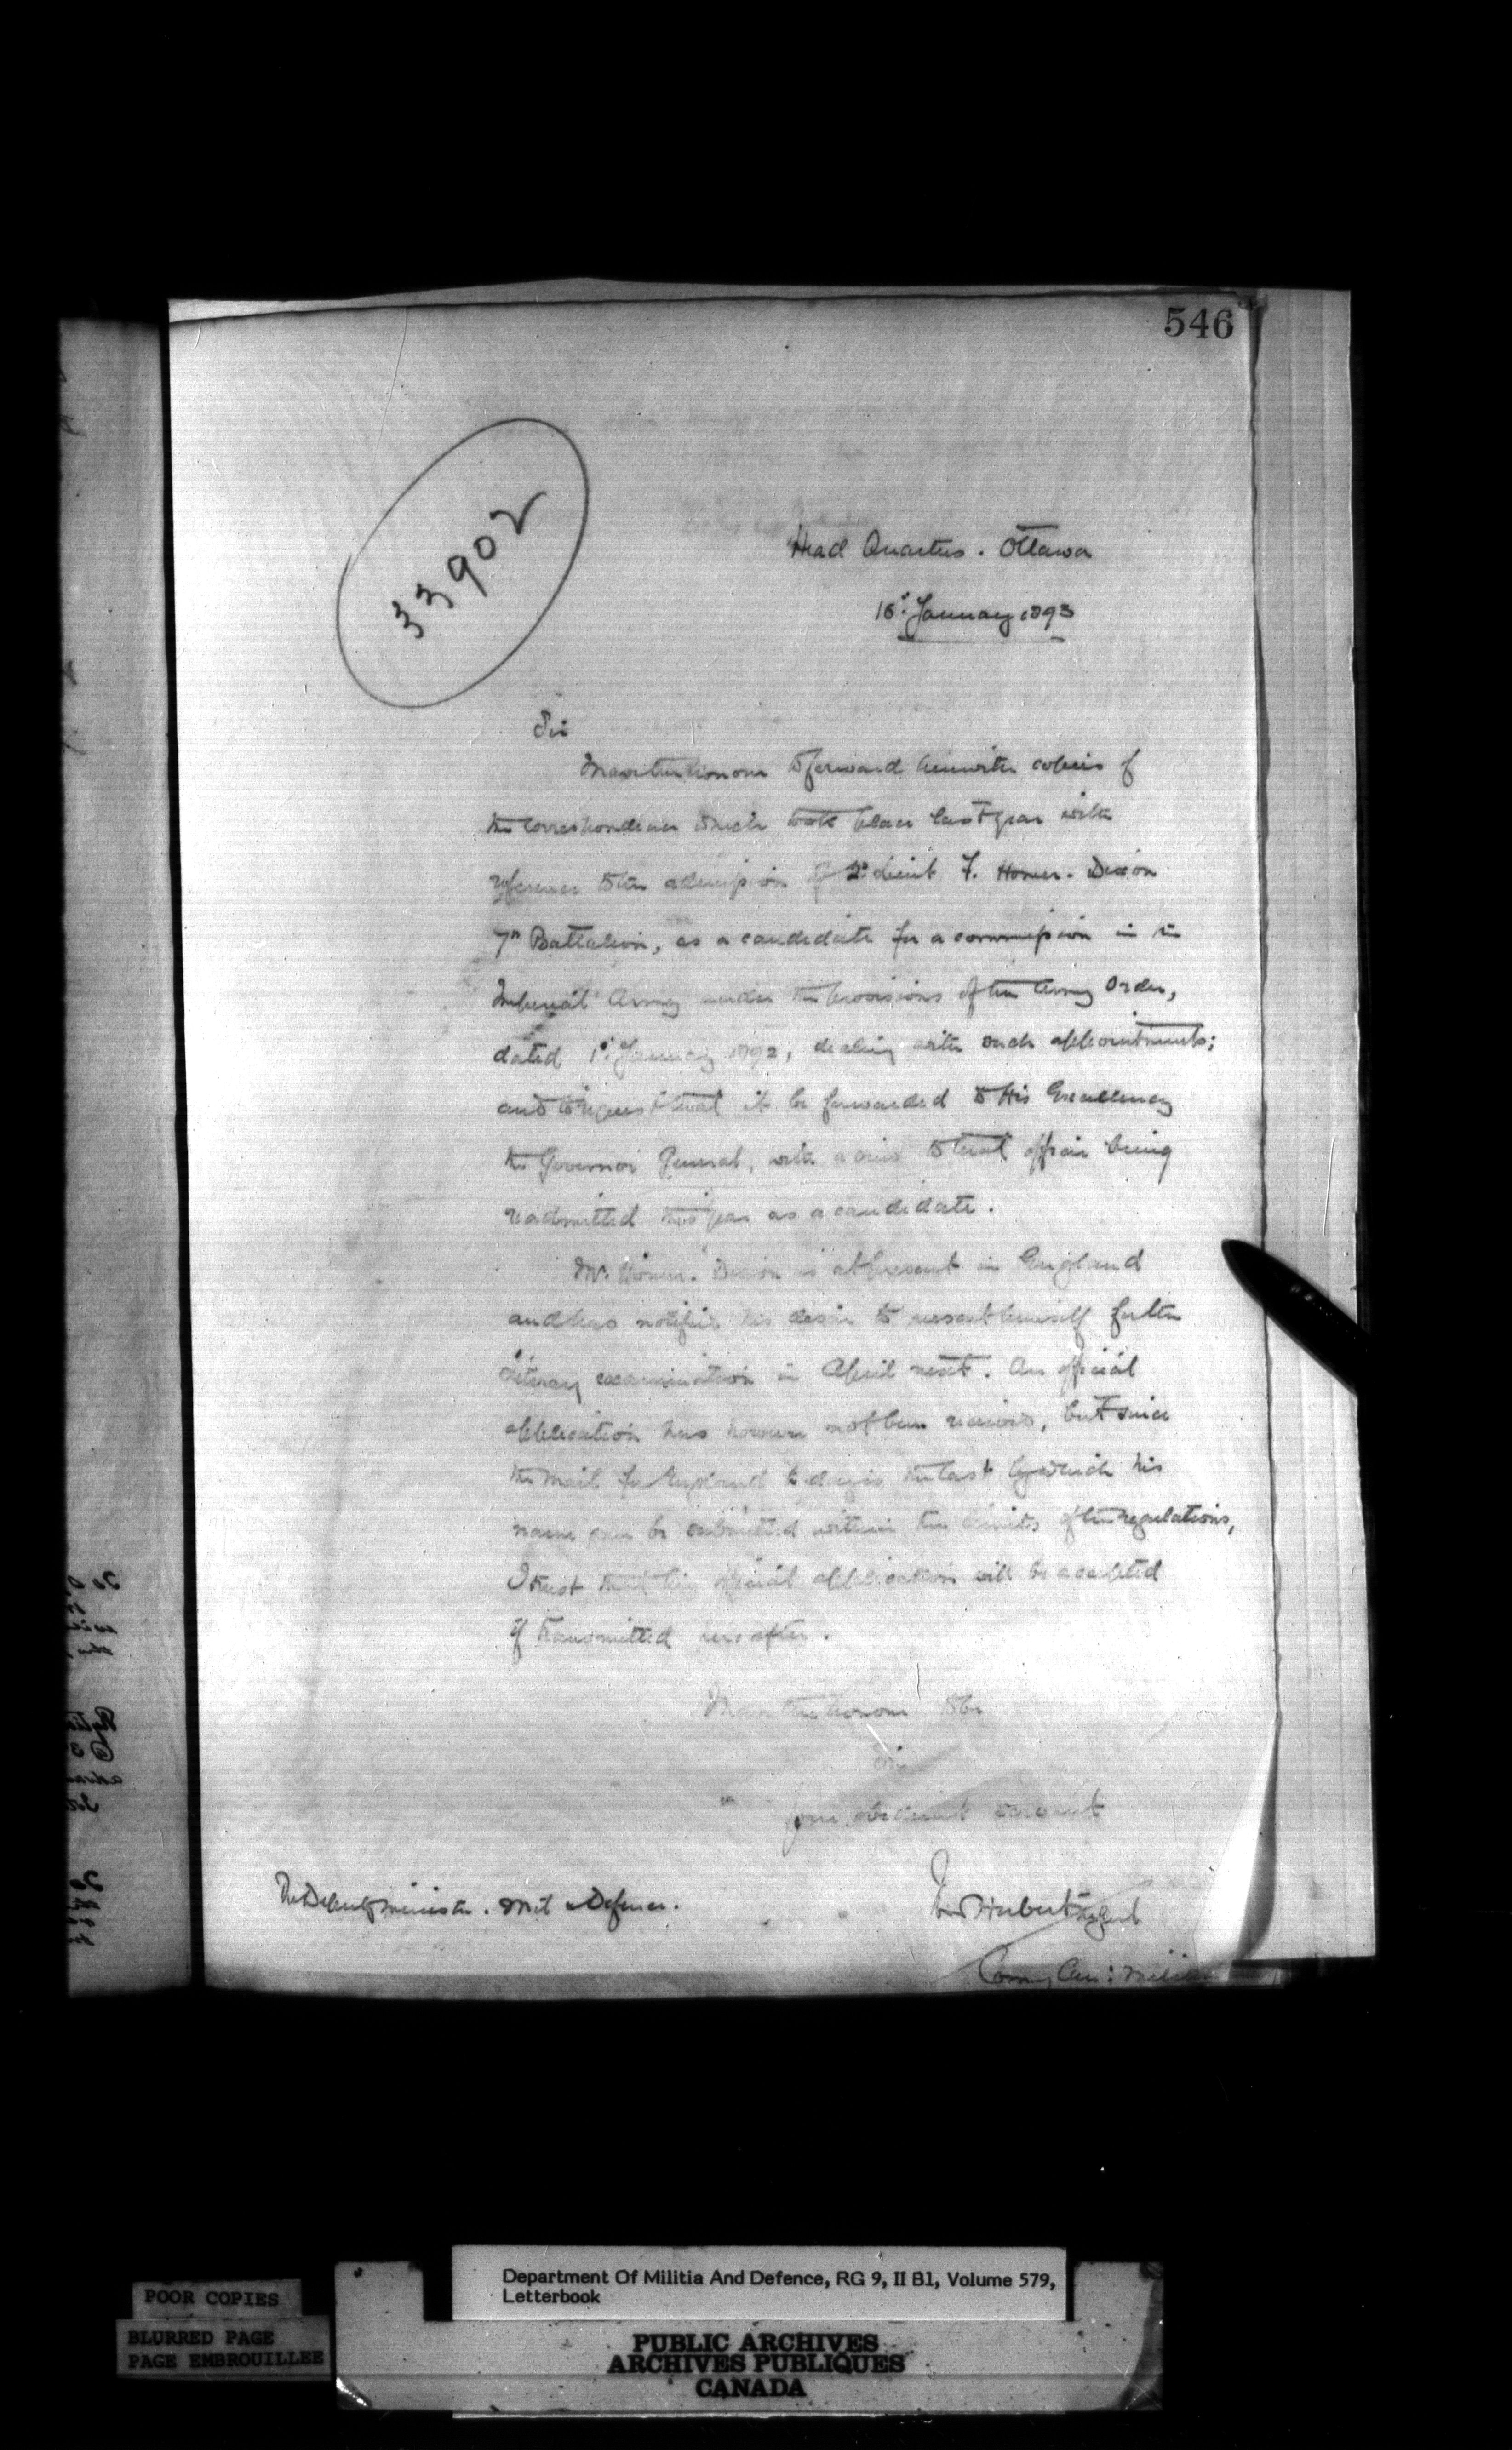 546
33902
Head Quarters. Ottawa
16th January 1893
Sir
I have the honour to forward herewith copies of
the correspondence which took place last year with
reference to the admission of 2d Lieut F. Homer-Dixon
7th Battalion, as a candidate for a commission in the
Imperial Army under the provisions of the Army Order,
dated 1st January 1892, dealing with such appointments;
and to request that it be forwarded to His Excellency
the Governor General, with a view to that officer being
readmitted this year as a candidate.
Mr. Homer-Dixon is at present in England
and has notified his desire to present himself for the
literary examination in April next. An official
application has however not been received, but since
the mail for England to day is the last by which his
name can be submitted within the limits of the regulations,
I trust that his official application will be accepted
if transmitted hereafter.
I have the honour to be
Sir
your obedient servant
The Deputy Minister. Mil & Defence.
Ivor Herbert M Genl
Commg Can: Militia
Department Of Militia And Defence, RG 9, II B1, Volume 579,
Letterbook
POOR COPIES
BLURRED PAGE
PAGE EMBROUILLEE
PUBLIC ARCHIVES
ARCHIVES PUBLIQUES
CANADA